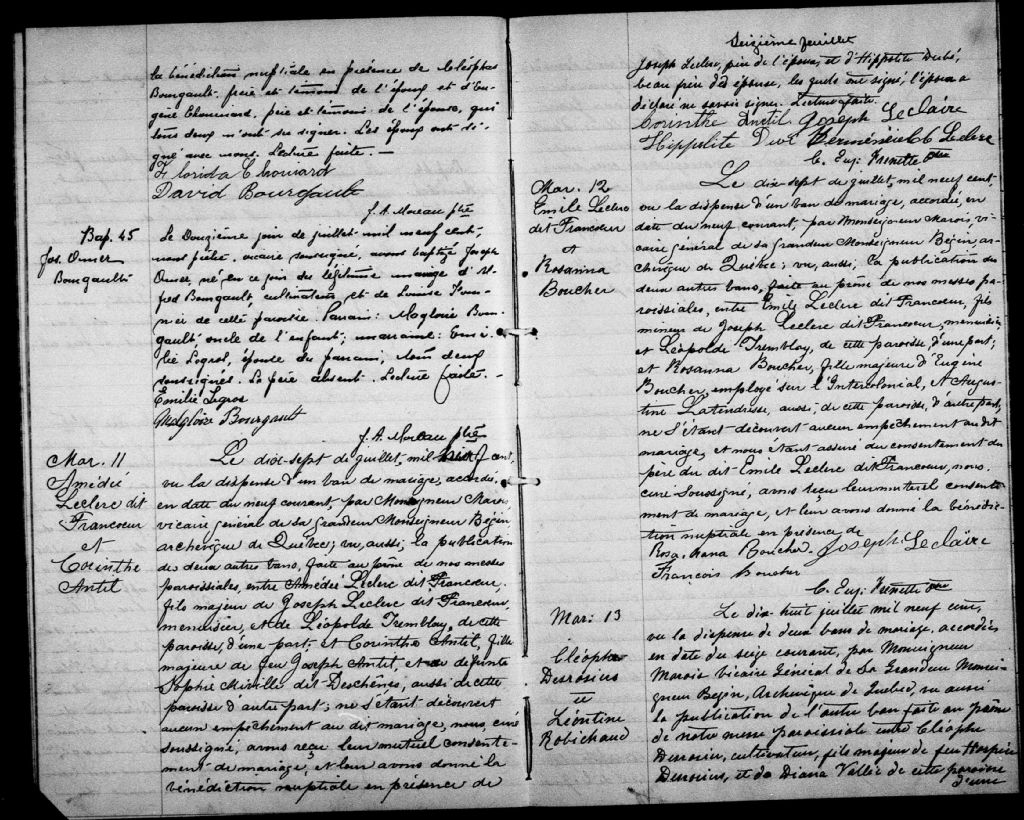 la bénédiction nuptiale en présence de Cléophas
Bourgault, père et témoin de l'époux et d'Eu-
gène Chouinard, père et témoin de l'épouse, qui
tous deux n'ont su signer. Les époux ont si-
gné avec nous. Lecture faite. —
Florida Chouinard
David Bourgault
J. A. Moreau ptre
Bap. 45
Jos. Omer
Bourgault
Le Douzième jour de juillet mil neuf cent,
nous prêtre, vicaire soussigné, avons baptisé Joseph
Omer, né en ce jour du légitime mariage d'Al-
fred Bourgault cultivateur et de Louise
de cette paroisse. Parrain: Magloire Bour-
gault, oncle de l'enfant; marraine: Emi-
lie Legros, épouse du parrain, tous deux
soussignés. Le père absent. Lecture faite. —
Emilie Legros
Magloire Bourgault
J. A. Moreau ptre
Mar. 11
Amédée
Leclerc dit
Francoeur
et
Corinthe
Antil
Le dix-sept de juillet, mil neuf cent,
vu la dispense d'un ban de mariage, accordée,
en date du neuf courant, par Monseigneur Marois,
vicaire général de sa grandeur Monseigneur Bégin,
archevêque de Québec; vu, aussi, la publication
de deux autres bans, faite au prône de nos messes
paroissiales, entre Amédée Leclerc dit Francoeur,
fils majeur de Joseph Leclerc dit Francoeur,
menuisier, et de Léopolde Tremblay, de cette
paroisse, d'une part; et Corinthe Antil, fille
majeure de feu Joseph Antil et de défunte
Sophie Miville dit Deschênes, aussi de cette
paroisse d'autre part; ne s'étant découvert
aucun empêchement au dit mariage, nous, curé
soussigné, avons reçu leur mutuel consente-
ment de mariage, et leur avons donné la
bénédiction nuptiale en présence de
Seizième feuillet
Joseph Leclerc, père de l'époux, et d'Hippolite Dubé,
beau frère de l'épouse, les quels ont signé, l'épouse a
déclaré ne savoir signer. Lecture faite.
Corinthe Anctil Joseph Leclaire
Hippolite Leclerc
C. Eug: Frenette ptre
Mar. 12
Emile Leclerc
dit Francoeur
et
Rosanna
Boucher
Le dix-sept de juillet, mil neuf cent,
vu la dispense d'un ban de mariage, accordée, en
date du neuf courant, par Monseigneur Marois, vi-
caire général de sa grandeur Monseigneur Bégin, ar-
chevêque de Québec; vu, aussi, la publication des
deux autres bans, faite au prône de nos messes pa-
roissiales, entre Emile Leclerc dit Francoeur, fils
mineur de Joseph Leclerc dit Francoeur, menuisier,
et Léopolde Tremblay, de cette paroisse, d'une part;
et Rosanna Boucher, fille majeure d'Eugène
Boucher, employé sur l'Intercolonial, et Augus-
tine Latendresse, aussi, de cette paroisse, d'autre part,
ne s'étant découvert aucun empêchement au dit
mariage, et nous étant assuré du consentement du
père du dit Emile Leclerc dit Francoeur, nous,
curé soussigné, avons reçu leur mutuel consente-
ment de mariage, et leur avons donné la bénédic-
tion nuptiale en présence de
Rosa Anna Boucher. Joseph Leclaire
François Boucher
C. Eug: Frenette ptre
Mar: 13
Cléophe
Desrosiers
et
Léontine
Robichaud
Le dix-huit juillet mil neuf cent,
vu la dispense de deux bans de mariage, accordée
en date du seize courant, par Monseigneur
Marois Vicaire Général de Sa Grandeur Monsei-
gneur Bégin, Archevêque de Québec, vu aussi
la publication de l'autre ban faite au prône
de notre messe paroissiale entre Cléophe
Desrosiers, cultivateur, fils majeur de feu Hospice
Desrosiers, et de Diana Vallée de cette paroisse
d'une